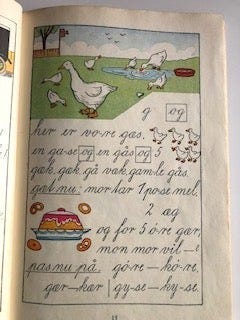 g og
her er vo-re gæs.
en ga-se og en gås og 5
gæk, gæk, gå væk, gam-le gås.
gæt nu: mor tar 1 po-se mel,
2 æg
og for 5 ø-re gær,
mon mor vil — e
pas nu på. gø-re — hø-re.
gær — kær gy-se — ky-se.